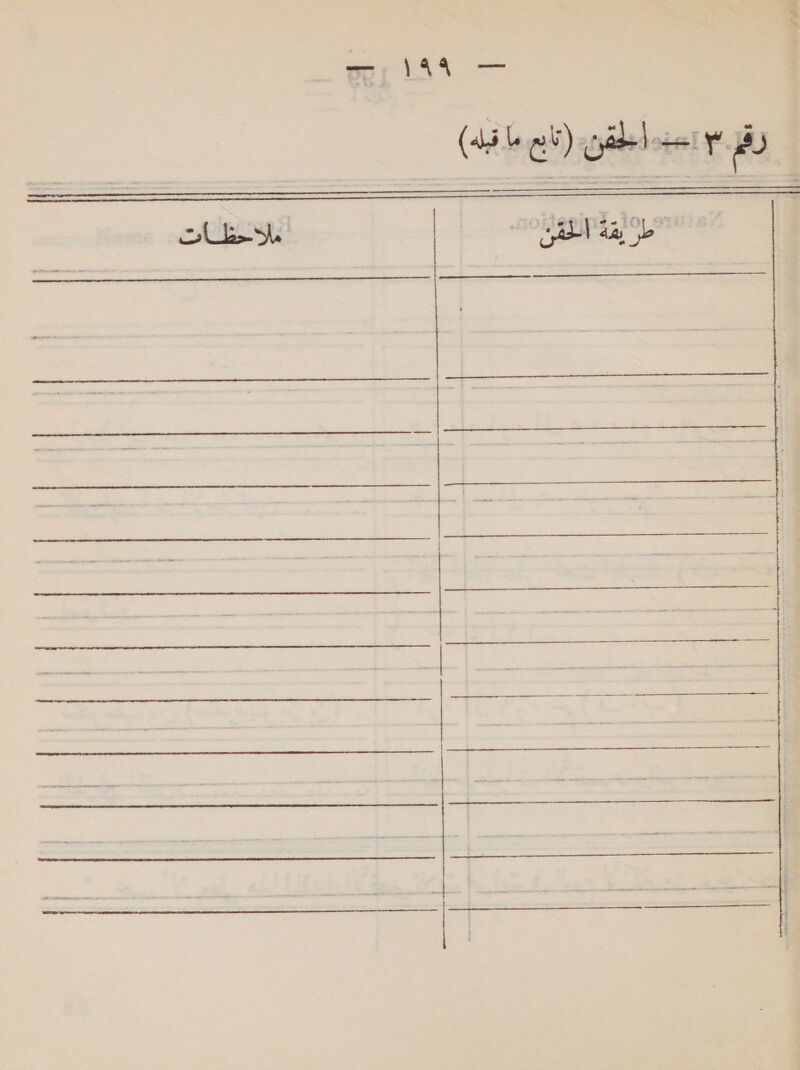 — ١٩٩ —
رقم ٣ — الحقن (تابع ما قبله)
طريقة الحقن
ملاحظات